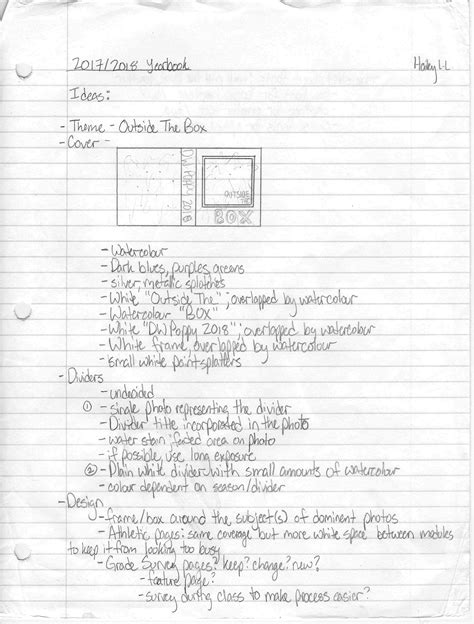 2017/2018 Yearbook
Haley LL
Ideas:
- Theme - Outside The Box
- Cover -
DW POPPY 2018
OUTSIDE
THE
BOX
- Watercolour
- Dark blues, purples, greens
- silver, metallic splotches
- White "Outside The"; overlapped by watercolour
- Watercolour "BOX"
- White "DW Poppy 2018"; overlapped by watercolour
- White frame, overlapped by watercolour
- small white paint splatters
- Dividers
- undecided
① - single photo representing the divider
- Divider title incorporated in the photo
- water stain, faded area on photo
- if possible, use long exposure
② - Plain white divider with small amounts of watercolour
- colour dependent on season/divider
- Design
- frame/box around the subject(s) of dominant photos
- Athletic pages: same coverage but more white space between modules
to keep it from looking too busy
- Grade Survey pages? keep? change? new?
- feature page?
- survey during class to make process easier?